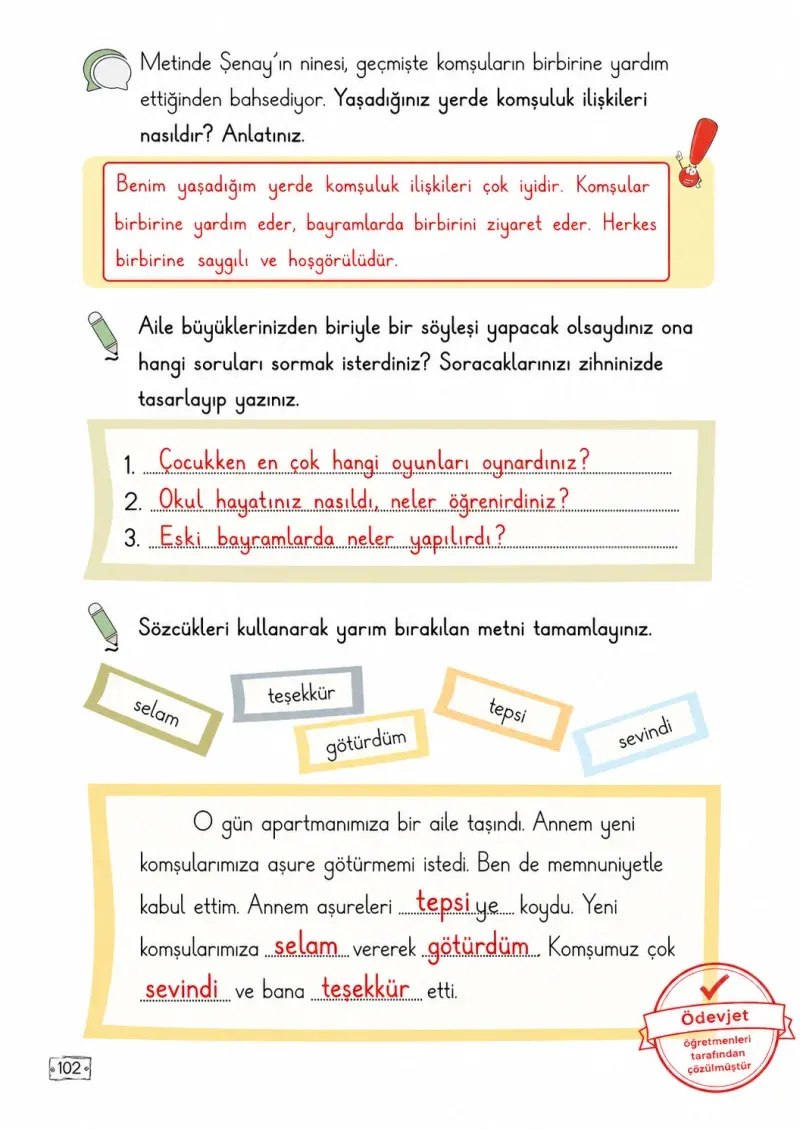 Metinde Şenay'ın ninesi, geçmişte komşuların birbirine yardım
ettiğinden bahsediyor. Yaşadığınız yerde komşuluk ilişkileri
nasıldır? Anlatınız.
Benim yaşadığım yerde komşuluk ilişkileri çok iyidir. Komşular
birbirine yardım eder, bayramlarda birbirini ziyaret eder. Herkes
birbirine saygılı ve hoşgörülüdür.
Aile büyüklerinizden biriyle bir söyleşi yapacak olsaydınız ona
hangi soruları sormak isterdiniz? Soracaklarınızı zihninizde
tasarlayıp yazınız.
1. Çocukken en çok hangi oyunları oynardınız?
2. Okul hayatınız nasıldı, neler öğrenirdiniz?
3. Eski bayramlarda neler yapılırdı?
Sözcükleri kullanarak yarım bırakılan metni tamamlayınız.
selam
teşekkür
götürdüm
tepsi
sevindi
O gün apartmanımıza bir aile taşındı. Annem yeni
komşularımıza aşure götürmemi istedi. Ben de memnuniyetle
kabul ettim. Annem aşureleri tepsiye koydu. Yeni
komşularımıza selam vererek götürdüm. Komşumuz çok
sevindi ve bana teşekkür etti.
Ödevjet
öğretmenleri
tarafından
çözülmüştür
102